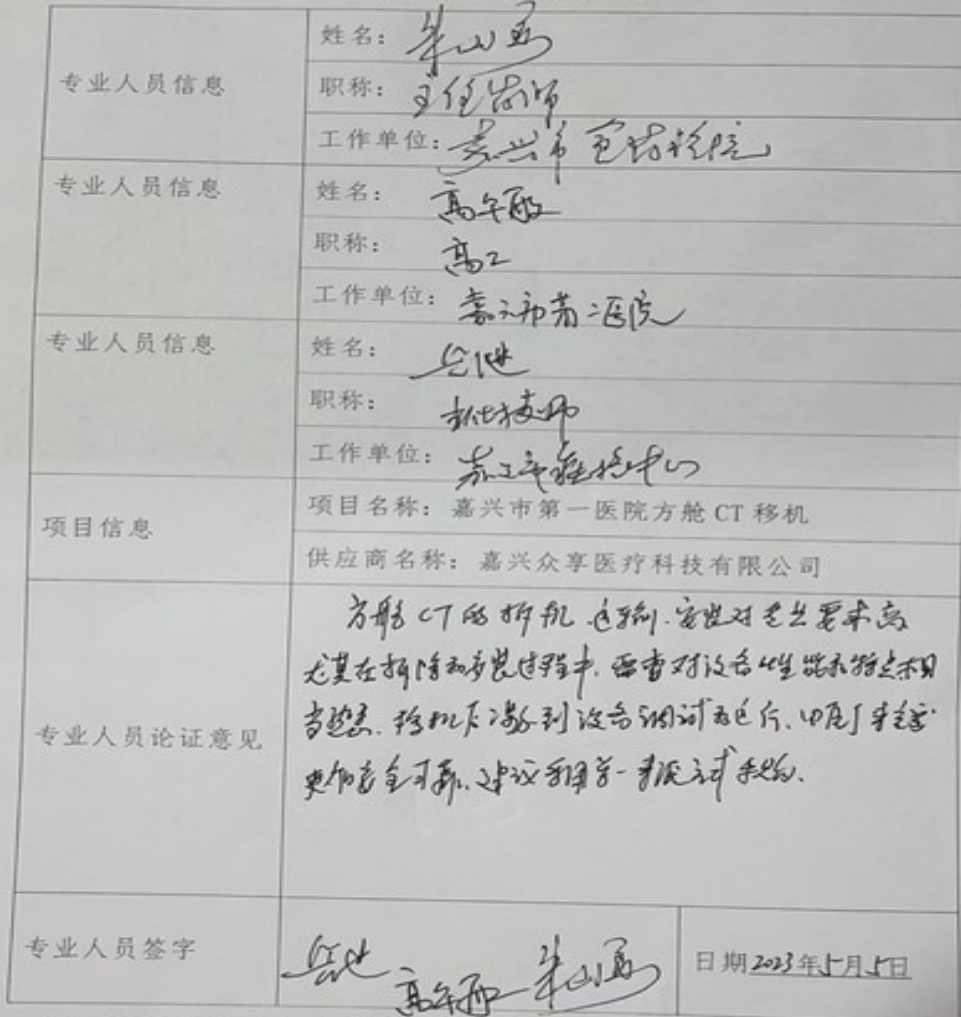 专业人员信息
姓名：
职称：主任药师
工作单位：嘉兴市食药检院
专业人员信息
姓名：高年
职称：高工
工作单位：嘉兴市第二医院
专业人员信息
姓名：
职称：主任技师
工作单位：
项目信息
项目名称：嘉兴市第一医院方舱 CT 移机
供应商名称：嘉兴众享医疗科技有限公司
专业人员论证意见
方舱 CT 的拆机、运输、安装对专业要求高
尤其在拆除和安装过程中，需要对设备性能和特点相
当熟悉，移机后涉及到设备调试和运行，由原厂来
更加安全可靠，建议采用单一来源方式采购。
专业人员签字
高年
日期 2023年5月5日